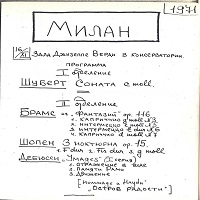 1971
МИЛАН
16/XI Зала Джузеппе Верди в консерватории.
ПРОГРАММА
I отделение
ШУБЕРТ Соната c moll.
II отделение
БРАМС „Фантазии" ор. 116
1. КАПРИЧЧИО d moll №3
2. ИНТЕРМЕЦЦО
3. ИНТЕРМЕЦЦО
4. КАПРИЧЧИО d moll
ШОПЕН 3 НОКТЮРНА ор. 15.
1 F dur 2. Fis dur 3. g moll
ДЕБЮССИ „Images" (I серия)
1. ОТРАЖЕНИЕ В ВОДЕ
2. ПАМЯТИ РАМО
3. ДВИЖЕНИЕ
[Hommage a Haydn
"ОСТРОВ РАДОСТИ"]